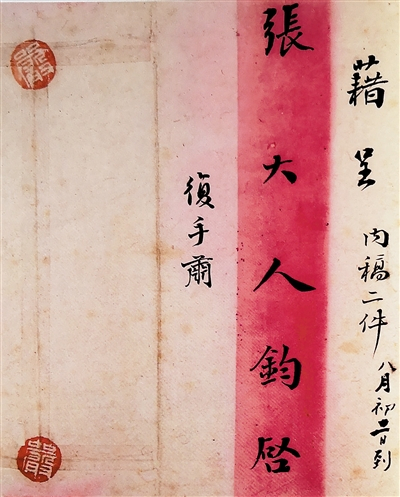 藉呈 内稿二件 八月初二日到
張大人鈞啓
復手肅